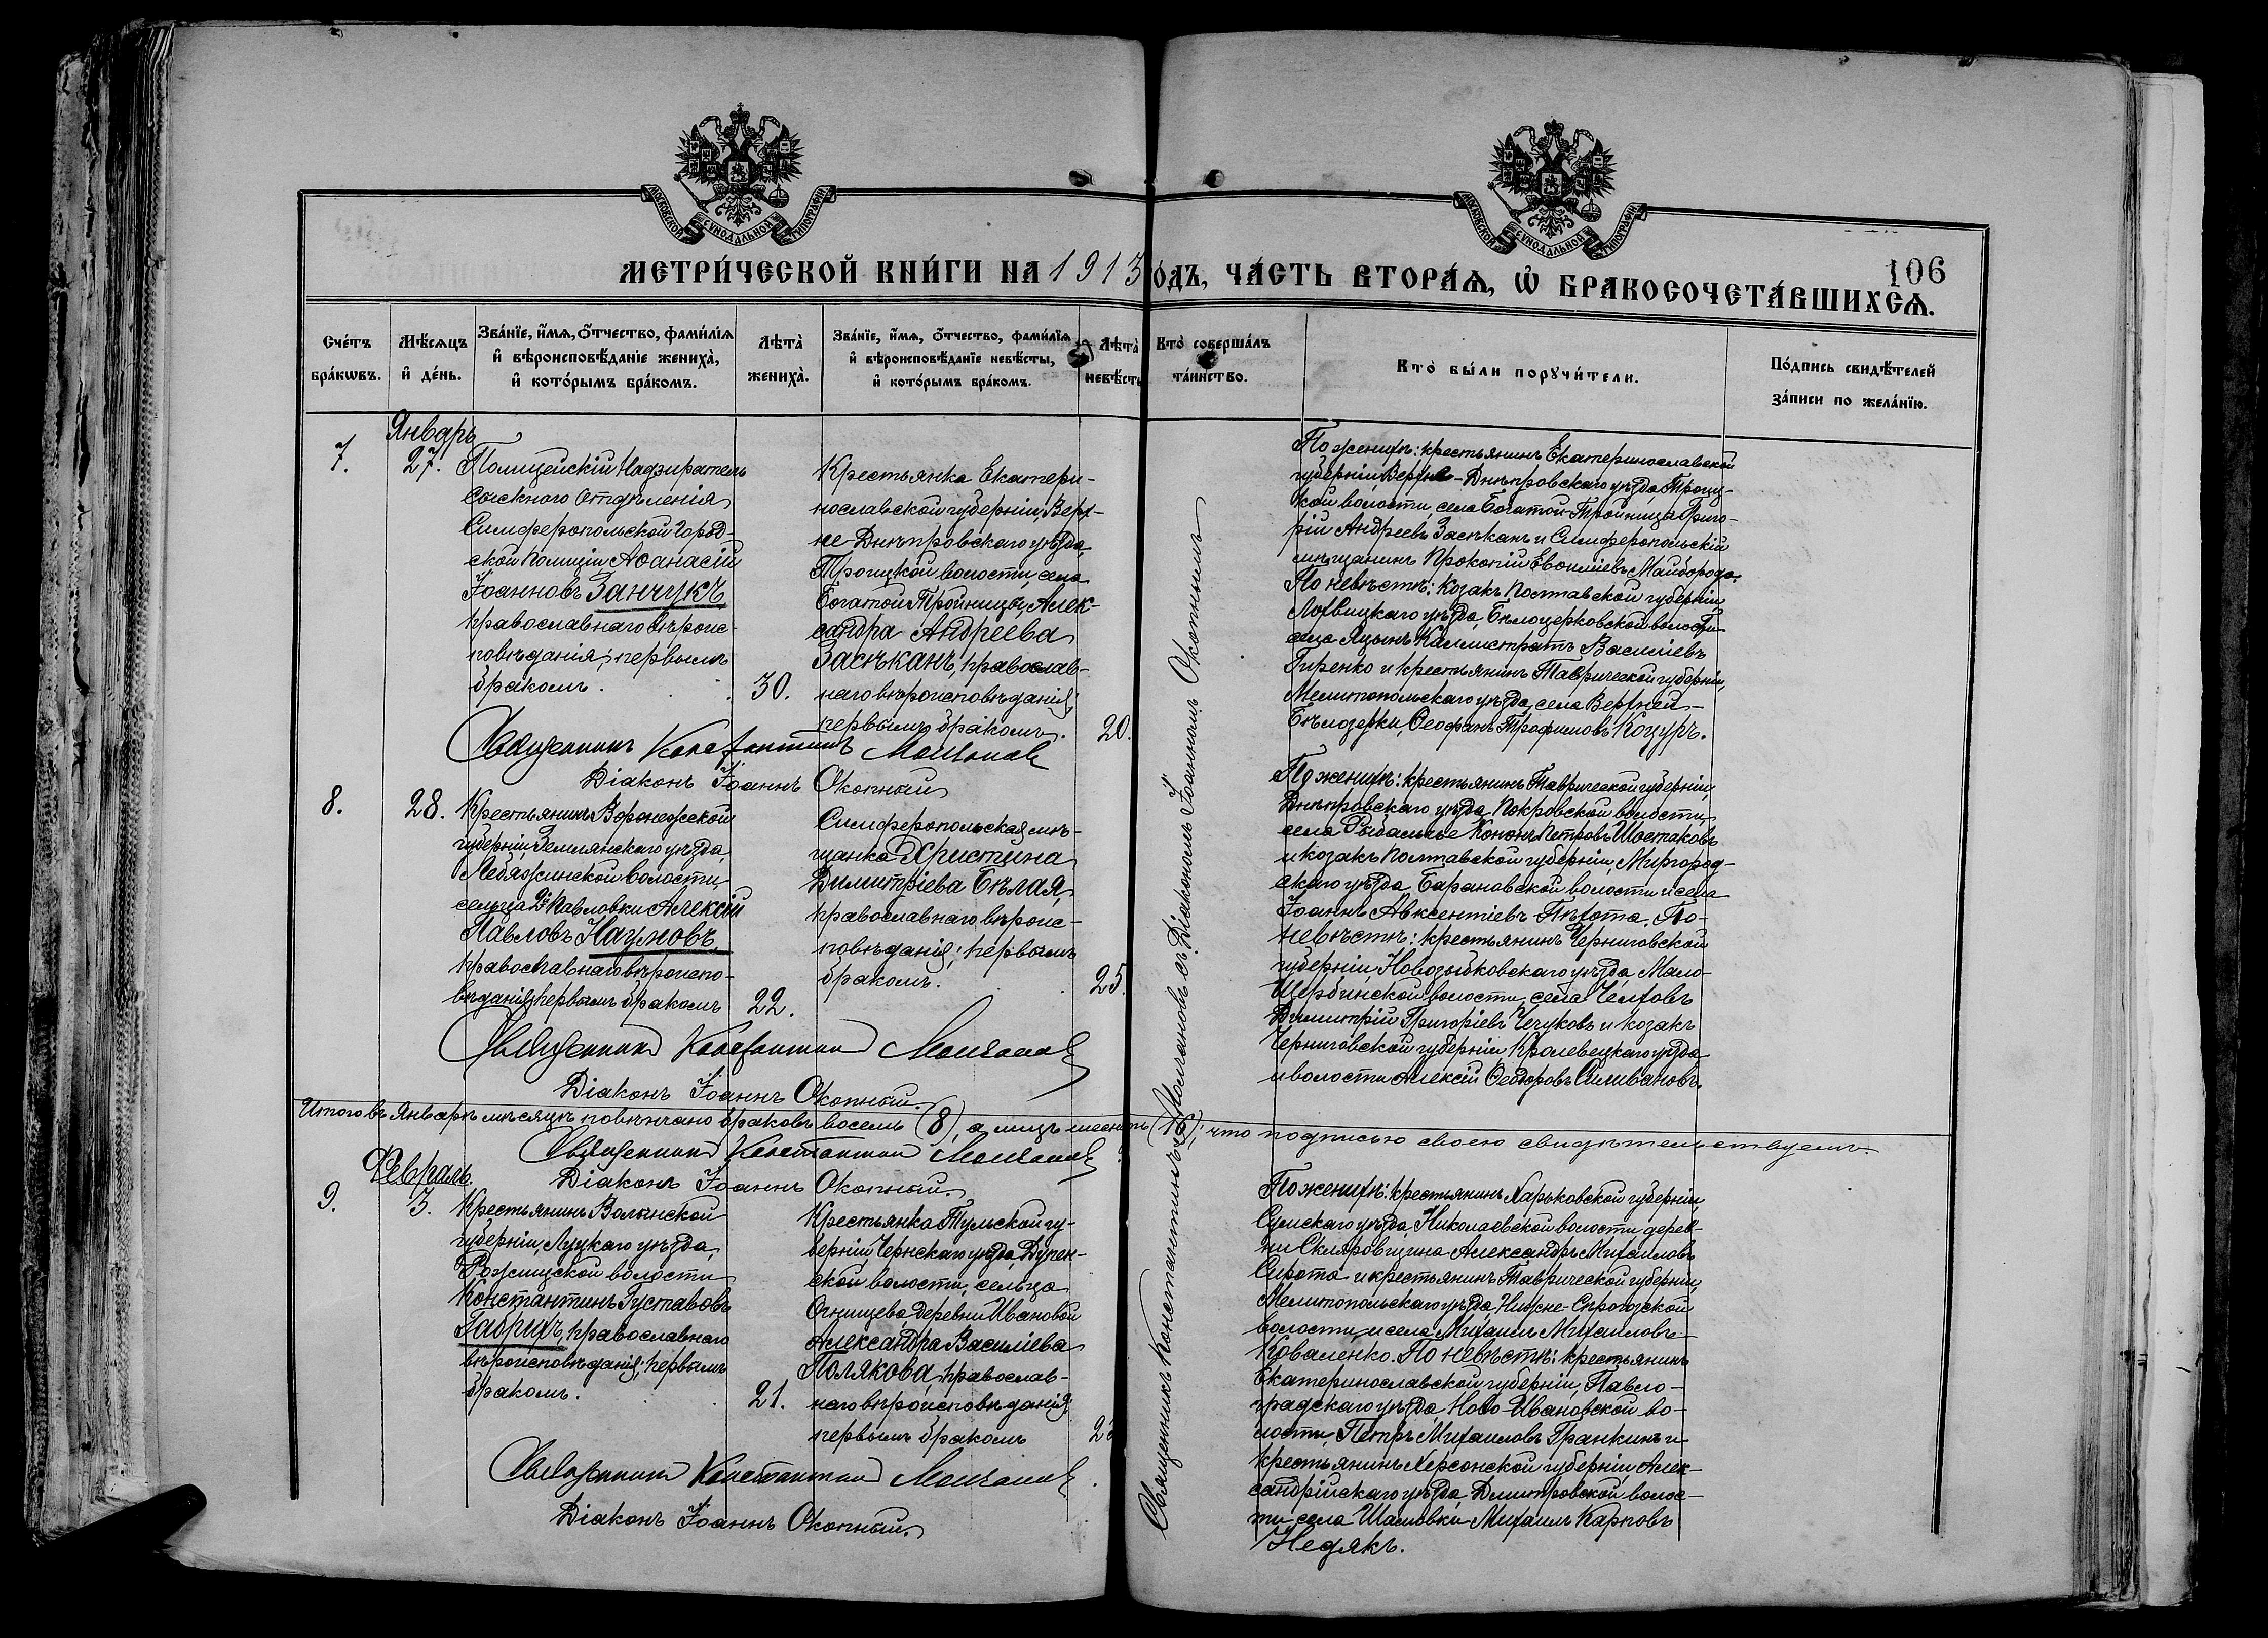 МОСКОВСКОЙ СѴНОДАЛЬНОЙ ТИПОГРАФІИ
МОСКОВСКОЙ СѴНОДАЛЬНОЙ ТИПОГРАФІИ
МЕТРИ́ЧЕСКОЙ КНИ́ГИ НА 1913
ОДЪ, ЧА́СТЬ ВТОРА́Ѧ, Ѡ҆ БРАКОСОЧЕТА́ВШИХСѦ.
106
Сче́тъ
бра́кѡвъ.
Мѣ́сѧцъ
и҆ де́нь.
Зва́нїе, и҆́мѧ, ѻ҆́тчество, фами́лїѧ
и҆ вѣроисповѣ́данїе жениха̀,
и҆ кото́рымъ бра́комъ.
Лѣта̀
жениха̀.
Зва́нїе, и҆́мѧ, ѻ҆́тчество, фами́лїѧ
и҆ вѣроисповѣ́данїе невѣ́сты,
и҆ кото́рымъ бра́комъ.
Лѣта̀
невѣ́сты
Кто̀ соверша́лъ
та́инство.
Кто̀ бы́ли порꙋчи́тели.
По́дпись свидѣ́телей
за́писи по жела́нїю.
Январь
7.
27.
Полицейскій Надзиратель
сыскного отдѣленія
Симферопольской Город-
ской Полиціи Аѳанасій
Іоанновъ Занчукъ
православнаго вѣроис-
повѣданія; первымъ
бракомъ.
30.
Крестьянка Екатери-
нославской губерніи, Верх-
не-Днѣпровскаго уѣзда,
Троицкой волости, села
Богатой-Тройницы, Алек-
сандра Андреева
Засѣканъ, православ-
наго вѣроисповѣданія;
первымъ бракомъ.
20.
По женихѣ: крестьянинъ Екатеринославской
губерніи Верхне-Днѣпровскаго уѣзда, Троиц-
кой волости, села Богатой-Тройницы Григо-
рій Андреевъ Засѣканъ и Симферопольскій
мѣщанинъ Прокопій Евѳиміевъ Майборода.
По невѣстѣ: козакъ Полтавской губерніи
Лохвицкаго уѣзда, Бѣлоцерковской волости
села Яцынъ Каллистратъ Василіевъ
Гиренко и крестьянинъ Таврической губерніи,
Мелитопольскаго уѣзда, села Верхней-
Бѣлозерки, Ѳеофанъ Трофимовъ Коцуръ.
Священникъ Константинъ Молчановъ
Діаконъ Іоаннъ Окопный
8.
28.
Крестьянинъ Воронежской
губерніи Землянскаго уѣзда,
Лебяжинской волости,
сельца Павловки Алексій
Павловъ Наумовъ,
православнаго вѣроиспо-
вѣданія; первымъ бракомъ
22.
Симферопольская мѣ-
щанка Христина
Димитріева Бѣлая,
православнаго вѣроис-
повѣданія; первымъ
бракомъ.
25.
По женихѣ: крестьянинъ Таврической губерніи,
Днѣпровскаго уѣзда, Покровской волости,
села Рыбалье Кононъ Петровъ Шостаковъ
и козакъ Полтавской губерніи, Миргород-
скаго уѣзда Барановской волости и села
Іоаннъ Авксентіевъ Пѣхота. По-
невѣстѣ: крестьянинъ Черниговской
губерніи, Новозыбковскаго уѣзда, Мало-
Щербинской волости, села Челховъ
Димитрій Григоріевъ Чечуковъ и козакъ
Черниговской губерніи, Кролевецкаго уѣзда
и волости Алексій Ѳеодоровъ Силивановъ.
Священникъ Константинъ Молчановъ
Діаконъ Іоаннъ Окопный.
Итого въ Январѣ мѣсяцѣ повѣнчано браковъ восемь (8), а лицъ шестнадцать (16); что подписью своею свидѣтельствуемъ.
Священникъ Константинъ Молчановъ
Діаконъ Іоаннъ Окопный.
Февраль.
9.
3.
Крестьянинъ Волынской
губерніи, Луцкаго уѣзда,
Рожищской волости
Константинъ Густавовъ
Габрихъ, православнаго
вѣроисповѣданія; первымъ
бракомъ.
21.
Крестьянка Тульской гу-
берніи Чернскаго уѣзда, Дупен-
ской волости, сельца
Огнищево деревни Ивановой
Александра Василіева
Полякова, православ-
наго вѣроисповѣданія
первымъ бракомъ
По женихѣ: крестьянинъ Харьковской губерніи,
Сумскаго уѣзда, Николаевской волости, дерев-
ни Скляровщина Александръ Михаиловъ
Сирота и крестьянинъ Таврической губерніи,
Мелитопольскаго уѣзда, Нижне-Сѣрогозской
волости, и села Михаилъ Михаиловъ
Коваленко. По невѣстѣ: крестьянинъ
Екатеринославской губерніи, Павло-
градскаго уѣзда, Ново-Ивановской во-
лости, Петръ Михаиловъ Гранкинъ и
крестьянинъ Херсонской губерніи, Алек-
сандрійскаго уѣзда, Дмитровской волос-
ти, села Шамовки Михаилъ Карповъ
Недякъ.
Священникъ Константинъ Молчановъ
Діаконъ Іоаннъ Окопный.
Священникъ Константинъ Молчановъ съ Діакономъ Іоанномъ Окопнымъ